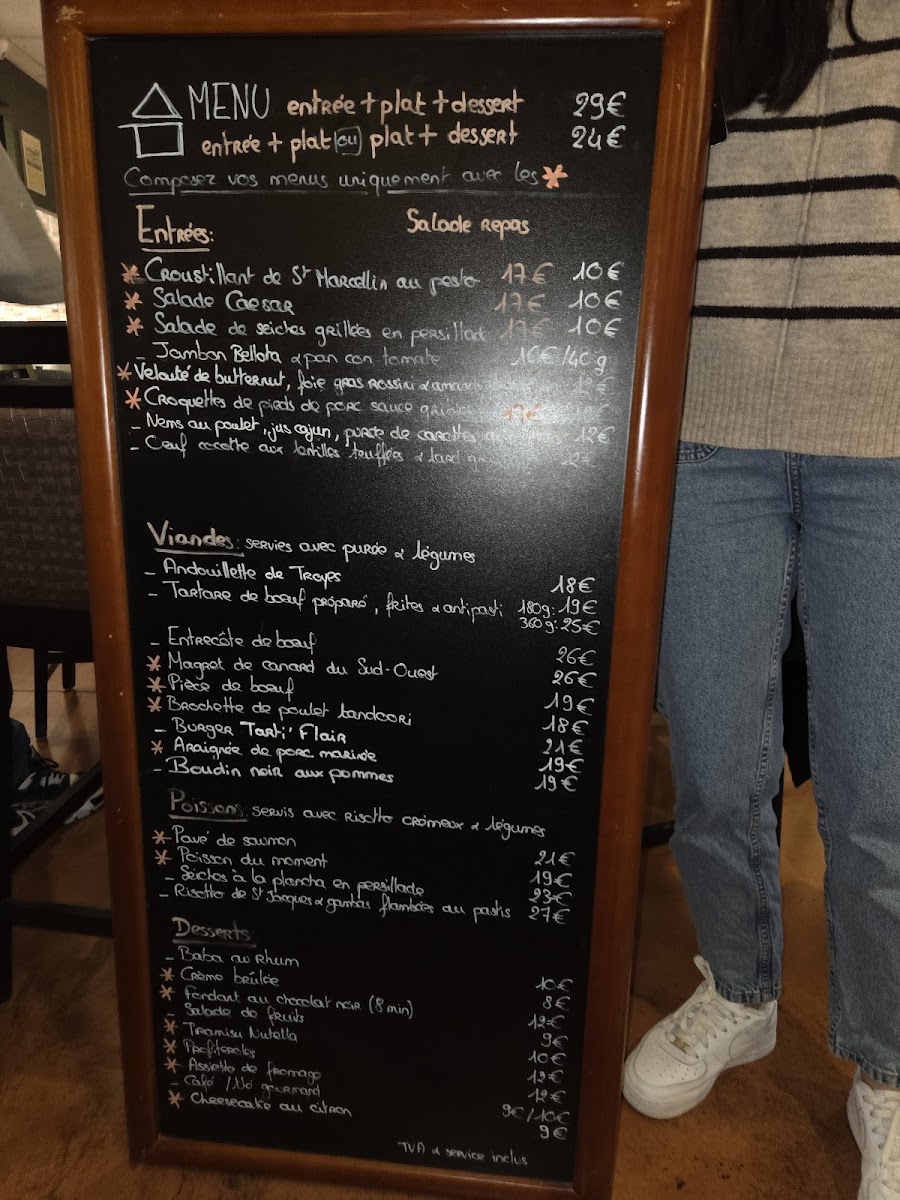 MENU entrée + plat + dessert 29€
entrée + plat ou plat + dessert 24€
Composez vos menus uniquement avec les *
Entrées: Salade Repas
* Croustillant de St Marcellin au pesto 17€ 10€
* Salade Caesar 17€ 10€
* Salade de seiches grillées en persillade 17€ 10€
- Jambon Bellota & pan con tomate 10€/40g
* Velouté de butternut, foie gras rossini & 12€
* Croquettes de pieds de porc sauce
- Nems au poulet, jus cajun, purée de carottes 12€
- Oeuf cocotte aux lentilles truffées & lard 12€
Viandes: servies avec purée & légumes
- Andouillette de Troyes 18€
- Tartare de boeuf préparé, frites & antipasti 180g: 19€
360g: 25€
- Entrecôte de boeuf 26€
* Magret de canard du Sud-Ouest 26€
* Pièce de boeuf 19€
* Brochette de poulet tandoori 18€
- Burger Tarti'Flair 21€
* Araignée de porc marinée 19€
- Boudin noir aux pommes 19€
Poissons: servis avec Risotto crémeux & légumes
* Pavé de saumon 21€
* Poisson du moment 19€
- Seiches à la plancha en persillade 23€
- Risotto de St Jacques & gambas flambées au pastis 27€
Desserts
- Baba au Rhum 10€
* Crème brûlée 8€
* Fondant au chocolat noir (8 min) 12€
- Salade de fruits 9€
* Tiramisu Nutella 10€
* Profiteroles 12€
* Assiette de fromage 12€
- Café / thé gourmand 9€/10€
* Cheesecake au citron 9€
TVA & service inclus